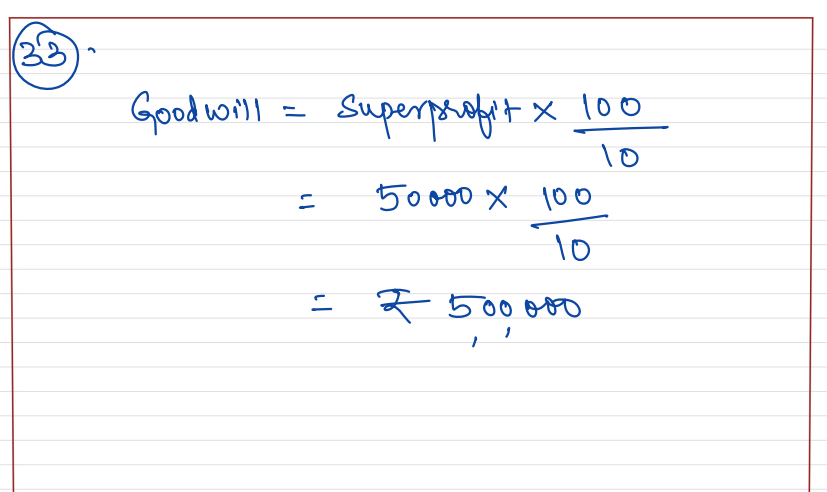 33.
Goodwill = Superprofit × 100/10
= 50000 × 100/10
= ₹ 5,00,000